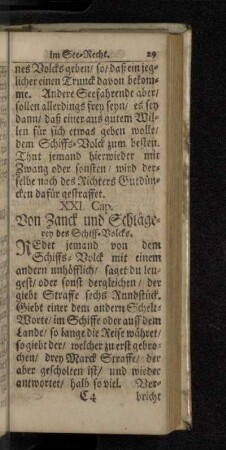 Im See-Recht. 29
nes Volcks geben/ so/ daß ein jeg-
licher einen Trunck davon bekom-
me. Andere Seefahrende aber/
sollen allerdings frey seyn/ es sey
dann/ daß einer aus gutem Wil-
len für sich etwas geben wolte/
dem Schiffs-Volck zum besten.
Thut jemand hierwieder mit
Zwang oder sonsten/ wird der-
selbe nach des Richters Gutdün-
cken dafür gestraffet.
XXI. Cap.
Von Zanck und Schläge-
rey des Schiff-Volcks.
REdet jemand von dem
Schiffs-Volck mit einem
andern unhöfflich/ saget du leu-
gest/ oder sonst dergleichen/ der
giebt Straffe sechs Rundstück.
Giebt einer dem andern Schelt-
Worte/ im Schiffe oder auff dem
Lande/ so lange die Reise währet/
so giebt der/ welcher zu erst gebro-
chen/ drey Marck Straffe/ der
aber gescholten ist/ und wieder
antwortet/ halb so viel. Ver-
C4 bricht